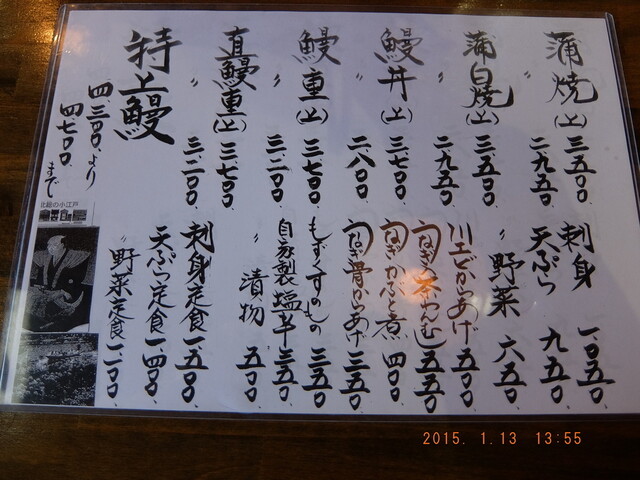 蒲焼(上) 三、五〇〇
〃 二、九五〇
蒲白焼(上) 三、五〇〇
〃 二、九五〇
鰻丼(上) 三、七〇〇
〃 二、八〇〇
鰻重(上) 三、七〇〇
〃 三、二〇〇
直鰻重(上) 三、七〇〇
〃 三、二〇〇
特上鰻
四、三〇〇より
四、七〇〇まで
刺身 一、〇五〇
天ぷら 九五〇
〃野菜 六五〇
川エビからあげ 五五〇
うなぎの茶わんむし 五五〇
うなぎかぶと煮 四〇〇
うなぎ骨からあげ 三五〇
もずくすのもの 三五〇
自家製塩辛 三五〇
〃 漬物 五〇〇
刺身定食 一、五〇〇
天ぷら定食 一、四〇〇
〃野菜定食 一、一〇〇
北総の小江戸
2015. 1.13 13:55